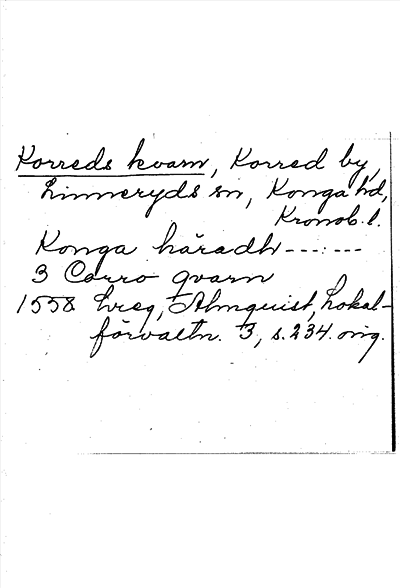 Korreds kvarn, Korred by,
Linneryds sn, Konga hd,
Kronob. l.
Konga häradh ---:---
3 Corro qvarn
1558 Lreg, Almquist, Lokal-
förvaltn. 3, s. 234. orig.